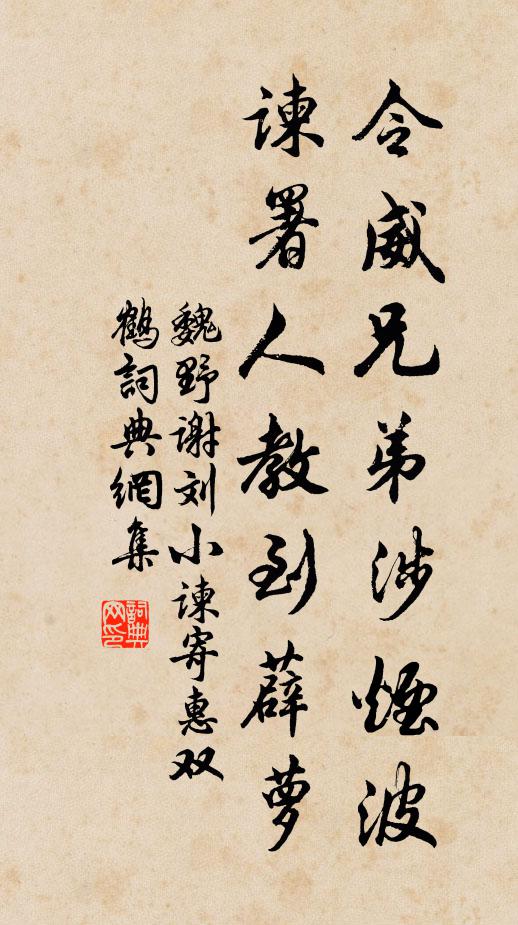 令威兄弟涉煙波
諫署人教到薜萝
魏野谢刘小諫寄惠双
鶴詞典網集
詞典
网印